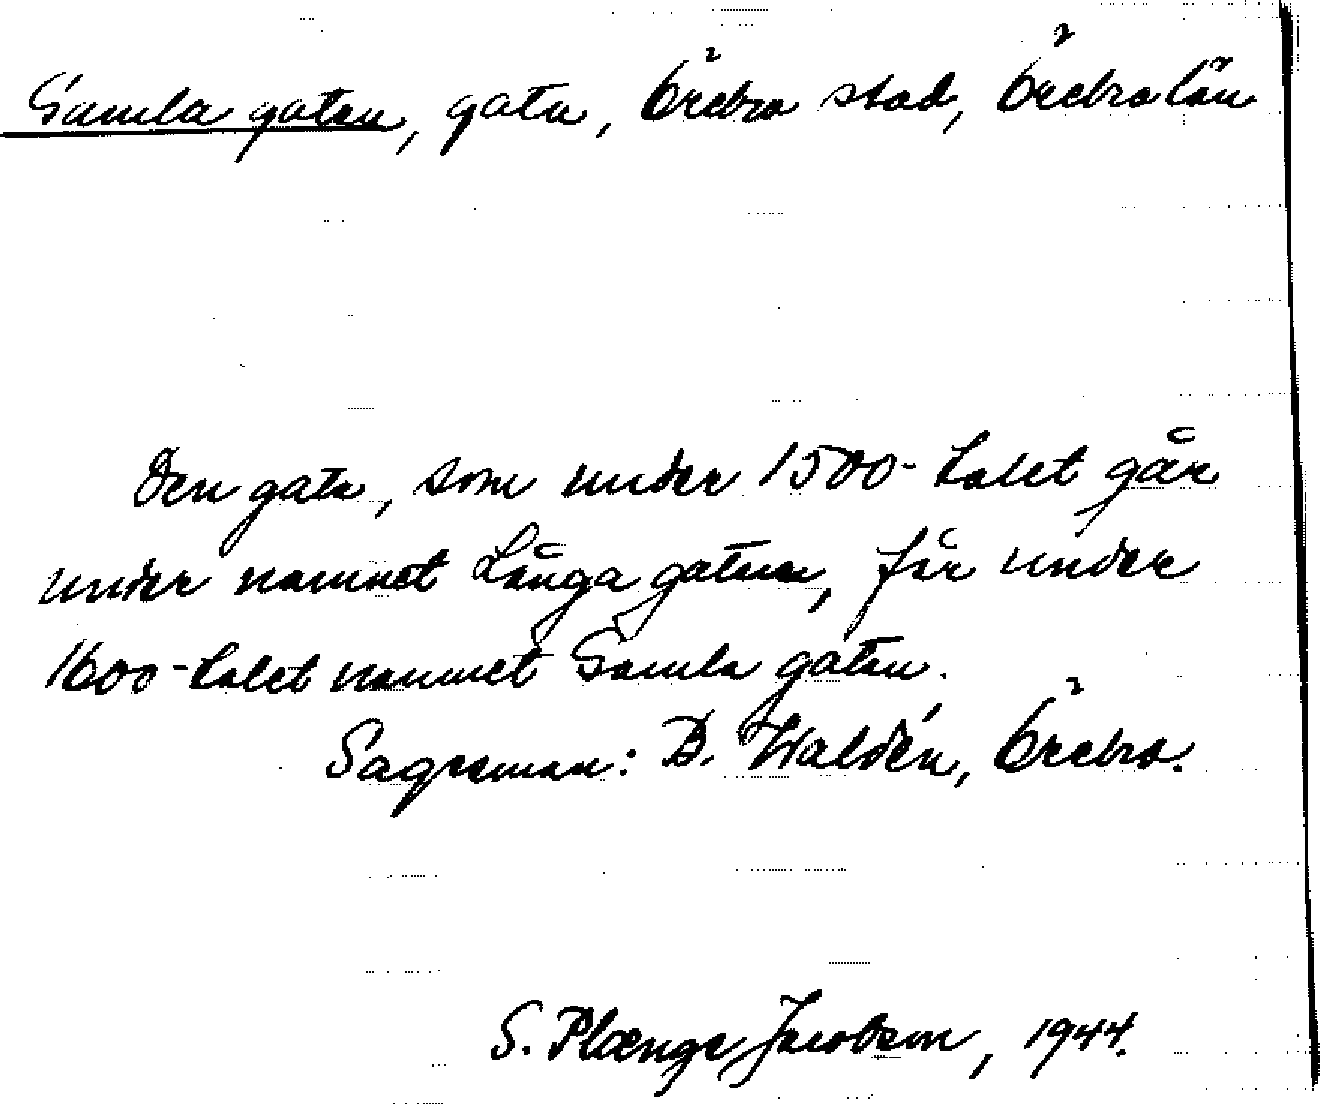 Gamla gatan, gata, Örebro stad, Örebro län
Den gata, som under 1500-talet går
under namnet Långa gatan, får under
1600-talet namnet Gamla gatan.
Sagesman: B. Waldén, Örebro.
S. Plænge Jacobson, 1944.